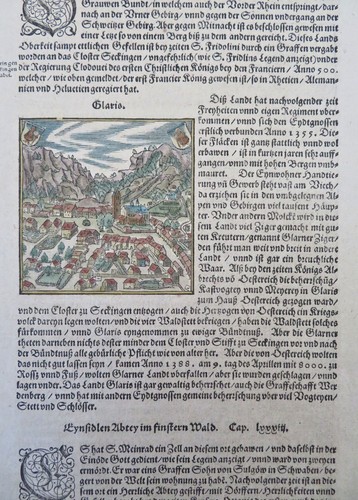 Grauwen Bundt / in welchem auch der Vorder Rhein entspringt / dar-
nach an der Vrner Gebirg / vnnd gegen der Sonnen vndergang an der
Schweitzer Gebirg. Aber gegen Mitnacht ist es beschlossen gewesen mit
einer Letze so von einem Berg biß zu dem andern gereicht. Dieses Lands
Oberkeit sampt ettlichen Gefellen ist bey zeiten S. Fridolini durch ein Graffen vergabt
worden an das Closter Seckingen / vngefehrlich (wie S. Fridlins Legend anzeigt) vnder
der Regierung Clodouei des ersten Christlichen Königs bey den Francken / Anno 500.
welcher / wie oben gemeldet / der erst Francker König gewesen ist / so in Rhetien / Aleman-
nien vnd Heluetien geregiert hat.
Glaris.
Diß Landt hat nachvolgender zeit
Freyheiten vnnd eigen Regiment vber-
kommen / vnnd sich den Eydtgnossen
erstlich verbunden Anno 1355. Die-
ser Fläcken ist gantz stattlich vnnd wol
erbawen / ist in kurtzen jaren sehr auff-
gangen / vnnd mit hohen Bergen vmb-
mauret. Der Eynwohner Handtie-
rung vñ Gewerb steht vast am Viech /
da erziehen sie in den vmbgelegnen Al-
pen vnd Gebirgen viel tausent Häup-
ter. Vnder andern Molcken wird in die-
sem Landt viel Ziger gemacht mit gu-
ten Kreutern / genannt Glarner Ziger /
den führt man weit vnd breit in andere
Landt / vnnd ist gar ein breuchliche
Waar. Alß bey den zeiten Königs Al-
brechts vō Oesterreich die beherrschũg /
Kastvogtey vnnd Meyerey in Glaris
zum Hauß Oesterreich gezogen ward /
vnd dem Closter zu Seckingen entzogen / auch die Hertzogen von Oesterreich ein Kriegs-
volck dareyn legen wolten / vnd die vier Waldstett bekriegen / haben die Waldstett solches
fürkommen / vnnd Glaris eyngenommen zu ewiger Bündtnuß. Aber die Glarner
theten darneben nichts dester minder dem Closter vnd Stifft zu Seckingen vor vnd nach
der Bündtnuß alle gebürliche Pflicht wie von alter her. Aber die von Oesterreich wolten
das nicht gut lassen seyn / kamen Anno 1388. am 9. tag des Aprillen mit 8000. zu
Rossz vnnd Fuß / wolten Glarner Landt vberfallen / aber sie wurden geschlagen / vnnd
lagen vnder. Das Landt Glaris ist gar gewaltig beherrschet / auch die Graffschafft Wer-
denberg / vnnd hat mit andern Eydtgnossen gemein beherrschung vber viel Vogteyen /
Stett vnd Schlösser.
Eynsidlen Abtey im finstern Wald. Cap. lxxviij.
Es hat S. Meinrad ein Zell an diesem ort gehaben / vnd daselbst in der
Einöde Gott gedient / wie sein Legend anzeigt / vnnd ward von zweyen
ermördt. Er war eins Graffen Sohn von Sulgow in Schwaben / be-
gert von der Welt sein wohnung zu habẽ. Nachmalen ist an diesem
ort ein Herrliche Abtey gestifft / mit Dörffern / Herrlichheiten